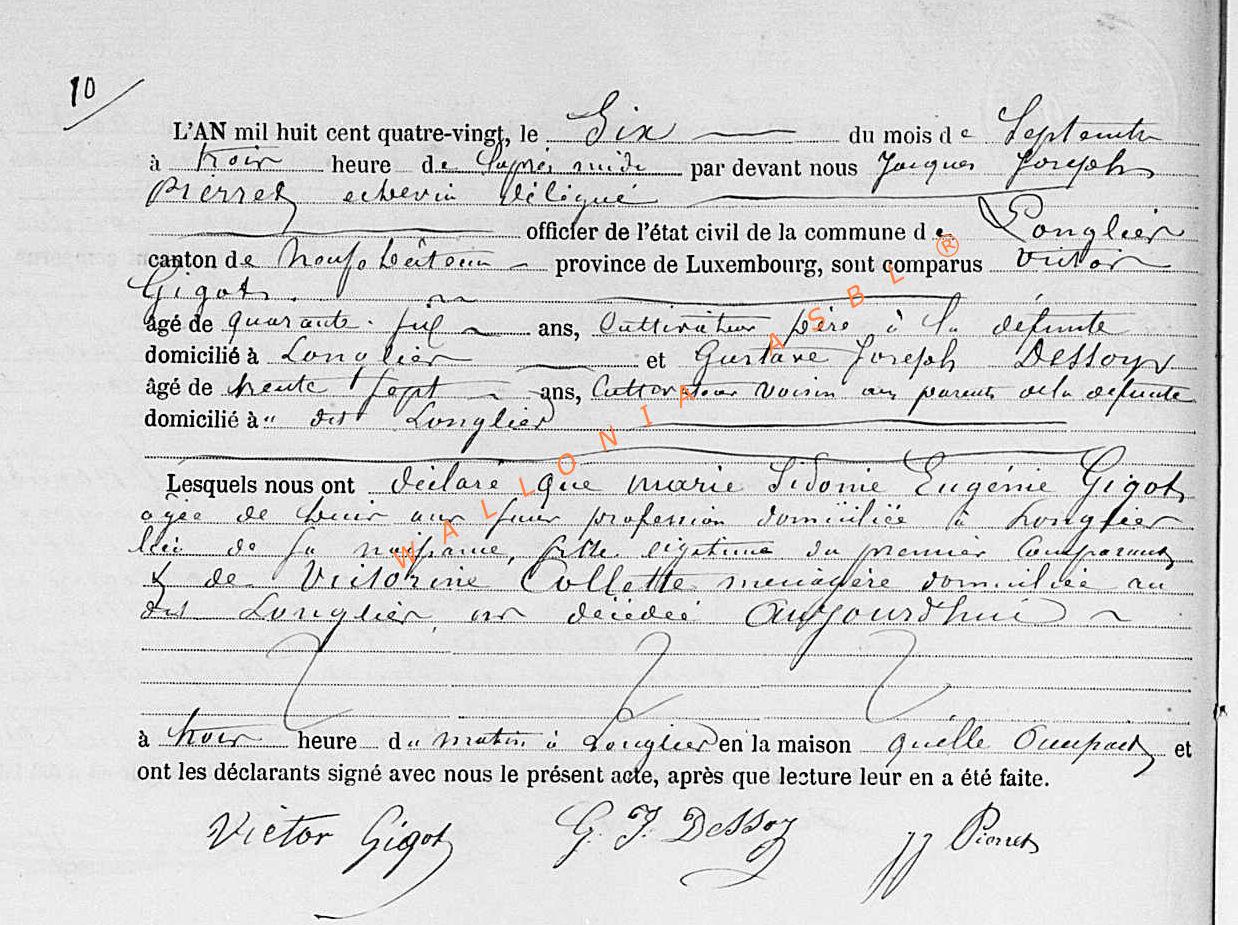 10
L'AN mil huit cent quatre-vingt, le Six du mois de Septembre
à trois heure de l'apres midi par devant nous Jacques Joseph
Pierret echevin délégué
officier de l'état civil de la commune de Longlier
canton de Neufchâteau province de Luxembourg, sont comparus Victor
Gigot
âgé de quarante six ans, Cultivateur père à la défunte
domicilié à Longlier et Gustave Joseph Dessoy
âgé de trente sept ans, Cultivateur voisin aux parents de la défunte
domicilié à dit Longlier
Lesquels nous ont déclaré que marie Sidonie Eugénie Gigot
agée de huit ans sans profession domiciliée à Longlier
lieu de sa naissance, fille légitime du premier Comparant
& de Victorine Collette menagère domiciliée au
dit Longlier, est décédée aujourd'hui
à trois heure du matin à Longlier en la maison qu'elle Occupait et
ont les déclarants signé avec nous le présent acte, après que lecture leur en a été faite.
Victor Gigot G. J. Dessoy JJ Pierret
WALLONIA ASBL ®